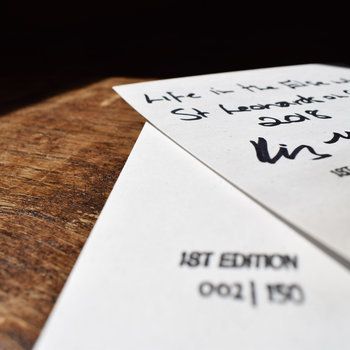 Life in the
St Leonards
2018
1ST
1ST EDITION
002 | 150